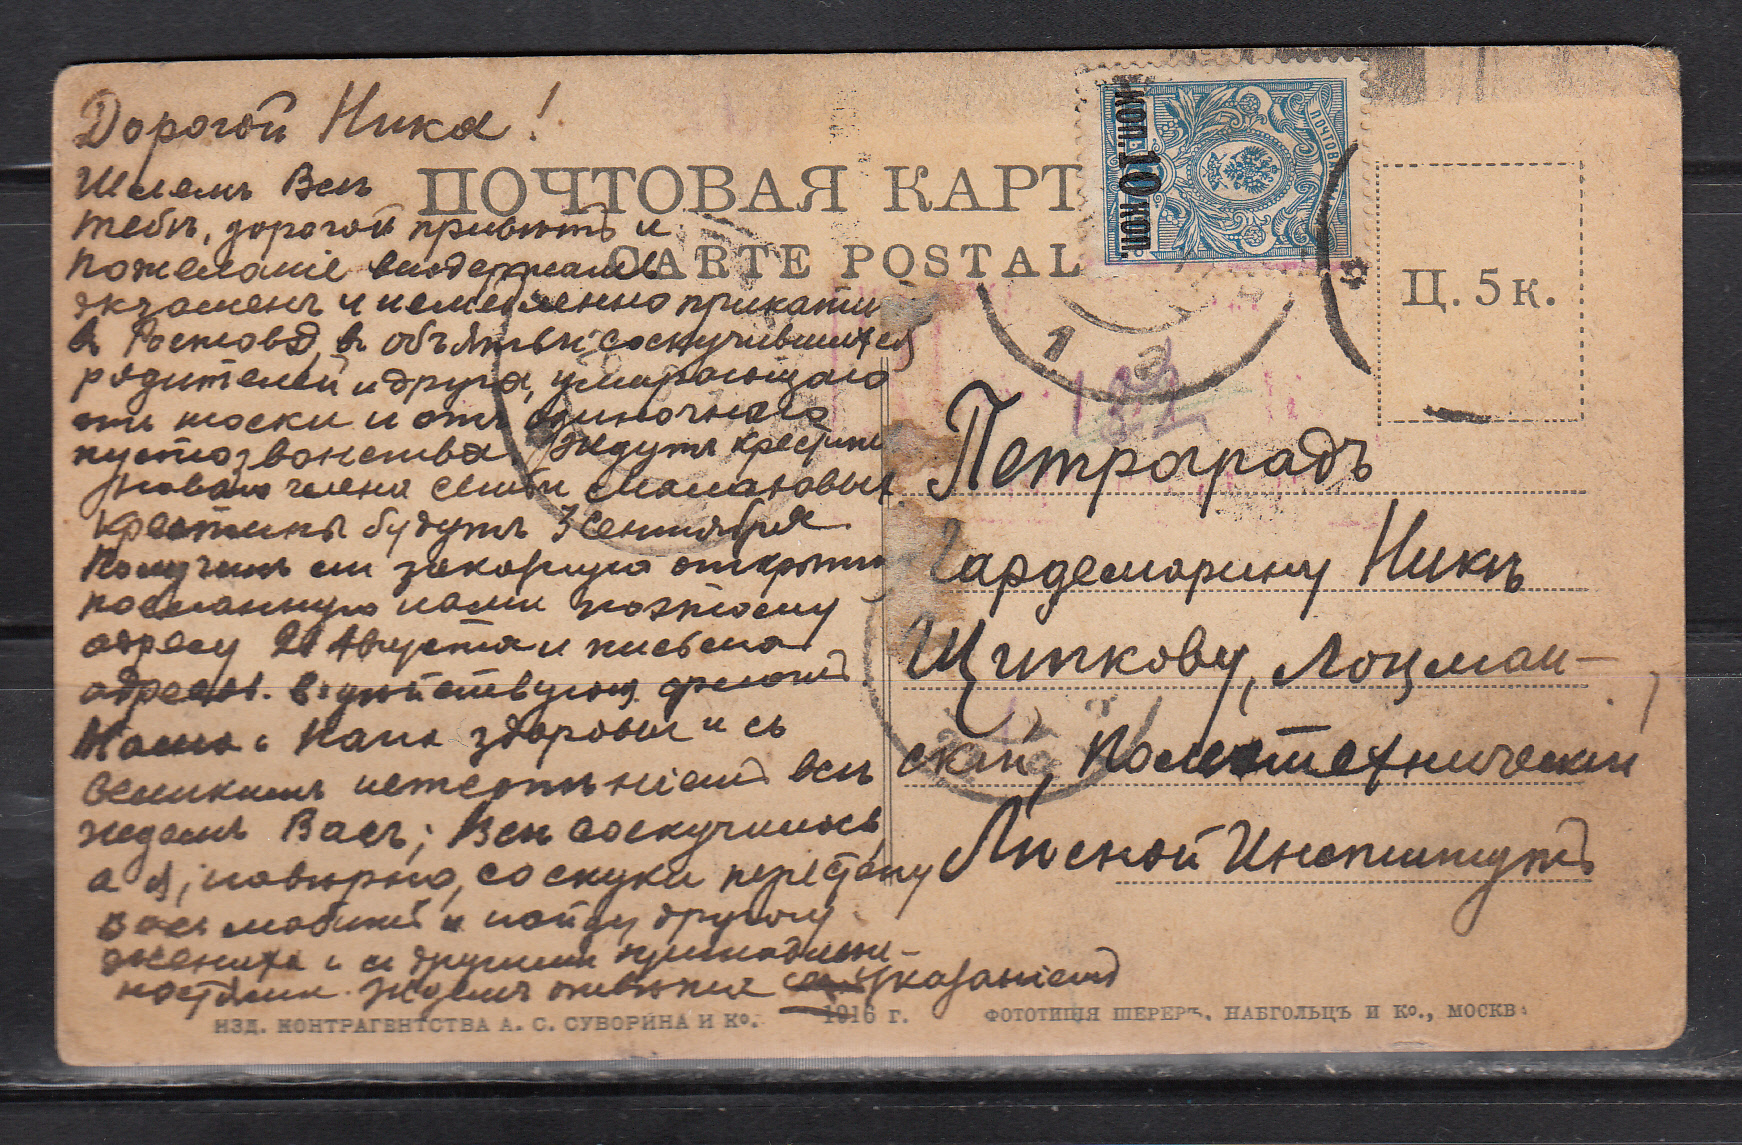 Дорогой Ника!
Шлемъ Всѣ
тебѣ, дорогой привѣтъ и
пожеланіе выдержать
экзаменъ и немедленно прикатить
въ Ростовъ, въ объятья соскучившихся
родителей и друга, умирающаго
отъ тоски и отъ одиночнаго
пустозвонства Ждутъ крестины
новаго члена семьи
Крестины будутъ 3 Сентября
Получилъ ли закрытую
посланную нами по этому
адресу 21 Августа и письма
адресов.
Мама и Папа здоровы и съ
великимъ нетерпѣніемъ всѣ
ждемъ Васъ; Всѣ соскучились,
а я, навѣрно, со скуки перестану
Васъ любить и найду другого
жениха и съ другими принадлеж-
ностями. Ждемъ отвѣта съ указаніемъ
ПОЧТОВАЯ КАРТ
CARTE POSTAL
ПОЧТОВАЯ
КОП. 10 КОП.
Ц. 5 к.
Петроградъ
Гардемарину Никѣ
Щипкову, Лоцман-
скій, Политехнический
Лѣсной Институтъ
ИЗД. КОНТРАГЕНТСТВА А. С. СУВОРИНА И Ко.
1916 г.
ФОТОТИПІЯ ШЕРЕРЪ, НАБГОЛЬЦЪ И Ко., МОСКВА